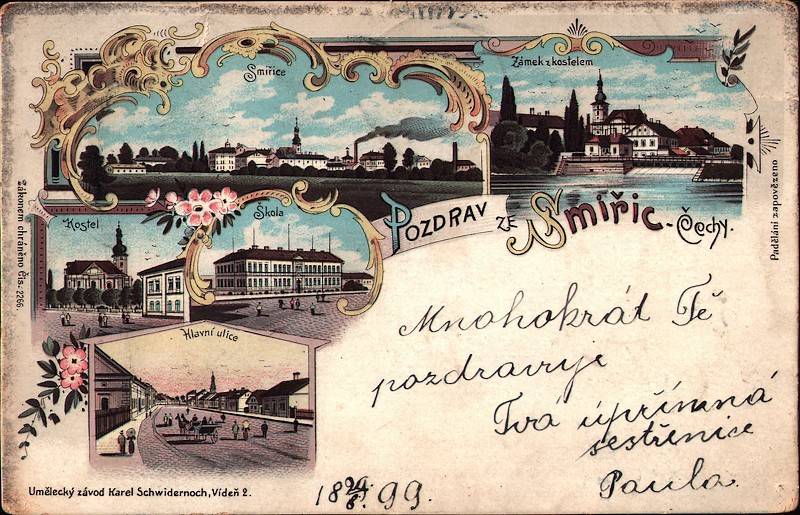 Smiřice
Zámek z kostelem
Kostel
Škola
Pozdrav ze Smiřic - Čechy.
Hlavní ulice
Zákonem chráněno Čís. 2266.
Padělání zapovězeno
Mnohokrát Tě
pozdravuje
Tvá upřímná
sestřenice
Paula.
18 29/8. 99.
Umělecký závod Karel Schwidernoch, Vídeň 2.